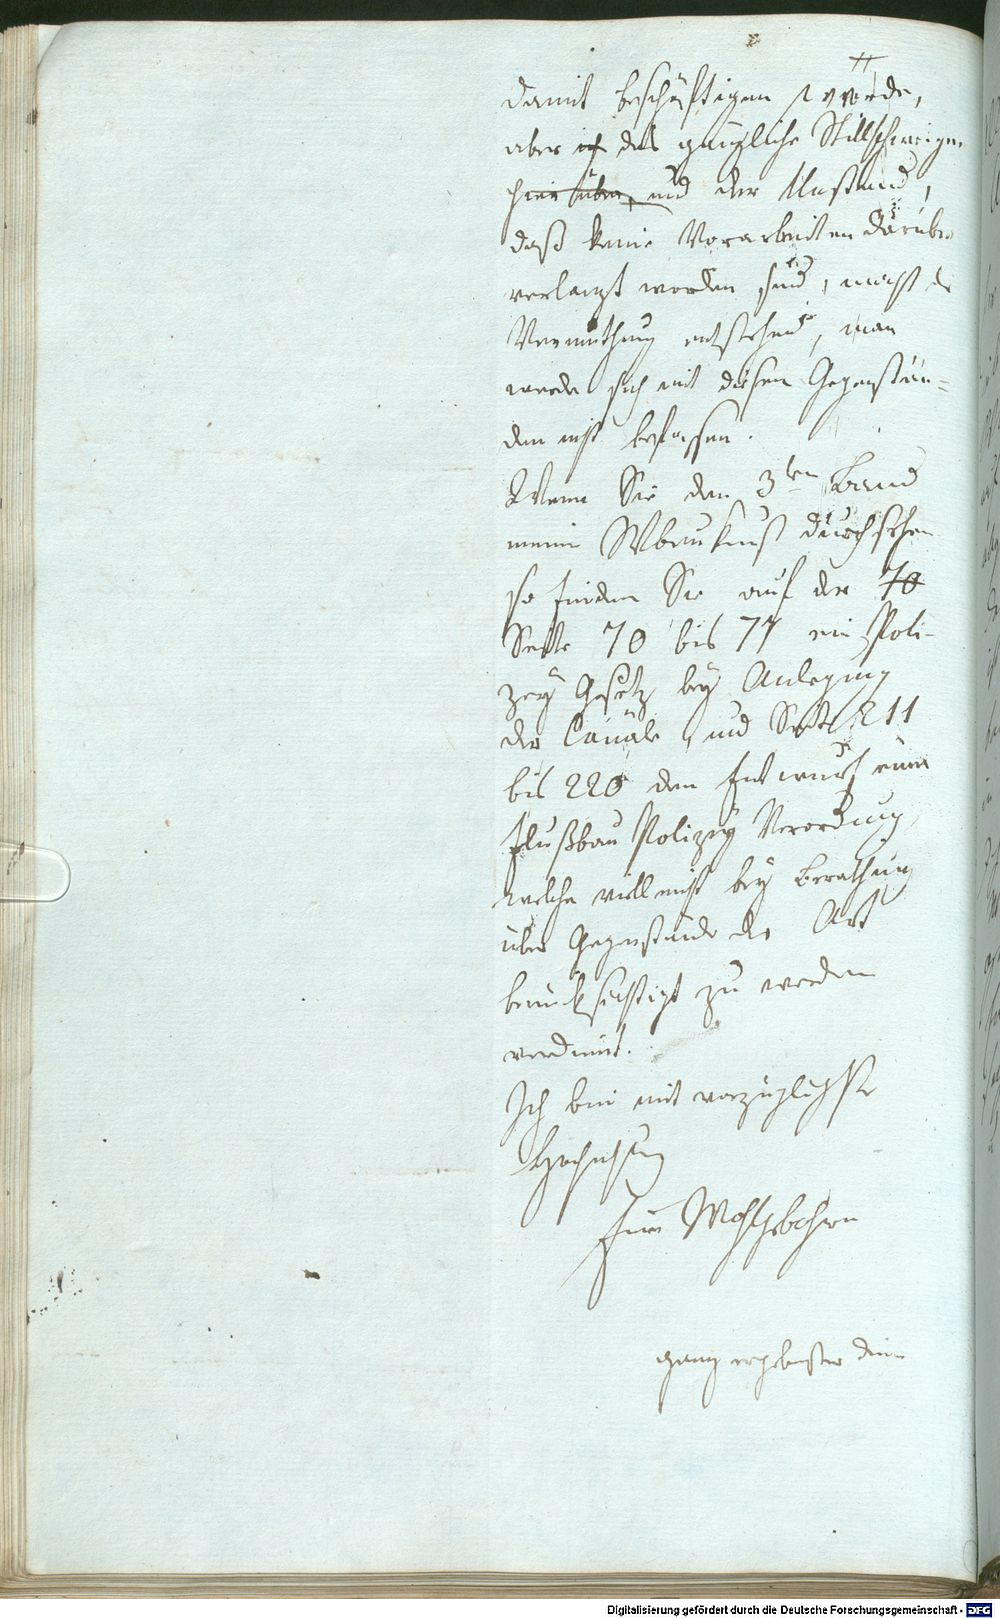 damit beschäftigen würde,
aber ich das gänzliche Stillschweigen
hierüber, und der Umstand,
daß keine Vorarbeiten darüber
verlangt worden sind, macht die
Vermuthung entstehend, man
werde sich mit diesen Gegenstän-
den nicht befassen.
Wenn Sie den 3ten Band
meine Wbaukunst durchsehen
so finden Sie auf der 70
Seite 70 bis 77 ein Poli-
zey Gesetz bey Anlegung
der Canäle, und Seite 211
bis 220 den Entwurf einer
Flußbau Polizey Verordnung,
welche vielleicht bey Berathung
über Gegenstände der Art
berücksichtigt zu werden
verdient.
Ich bin mit vorzüglichster
Hochachtung
Euer Wohlgebohren
ganz ergebenster Diener
Digitalisierung gefördert durch die Deutsche Forschungsgemeinschaft - DFG